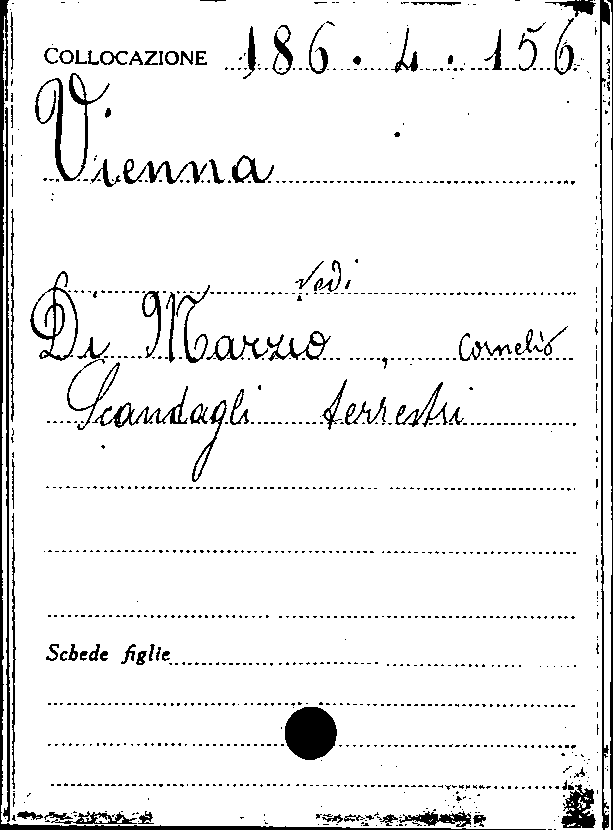 COLLOCAZIONE 186.4.156
Vienna
vedi
Di Marzio, Cornelio
Scandagli terrestri
Schede figlie